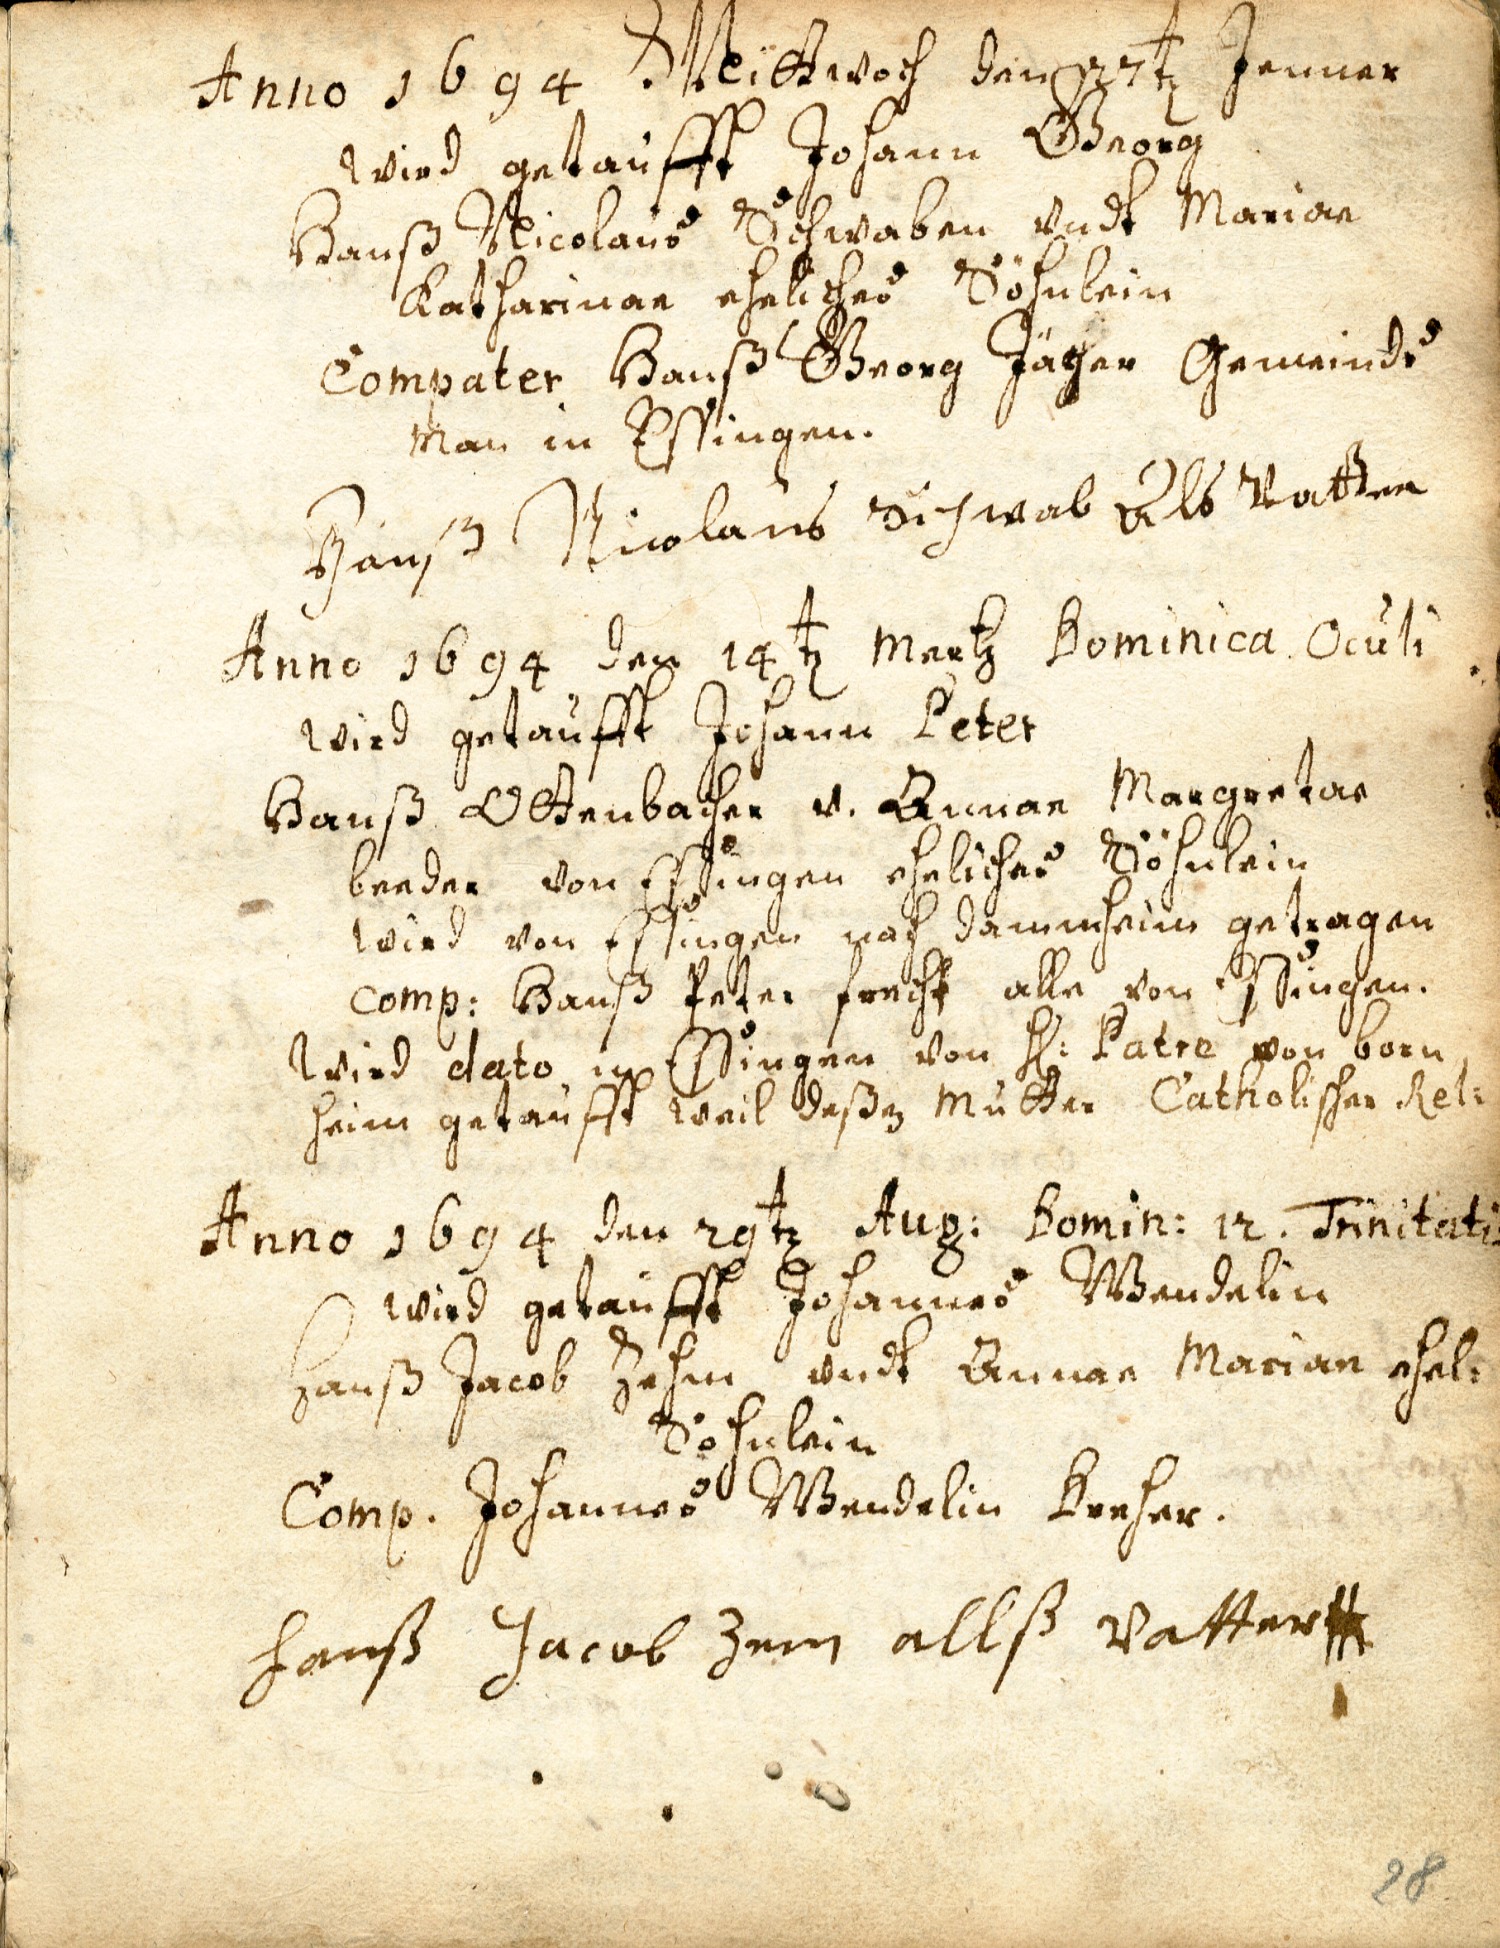 Anno 1694. Mittwoch den 27t Jenner
wird getaufft Johann Georg
Hanß Nicolaus Schwaben vndt Mariae
Katharinae eheliches Söhnlein
Compater Hanß Georg Jäger Gemeinds
Man in Essingen.
Hanß Nicolaus Schwab Als Vatter
Anno 1694 den 14t Mertz Dominica Oculi
wird getaufft Johann Peter
Hanß Ottenbacher v. Annae Margretae
beeder von Essingen eheliches Söhnlein
wird von Essingen nach Dammheim getragen
Comp: Hanß Peter frecht alle von Essingen.
Wird dato in Essingen von H: Patre von born
heim getaufft weil deßen Mutter Catholischer Rel:
Anno 1694 den 29t Aug: Domin: 12. Trinitatis
wird getaufft Johannes Wendelin
Hanß Jacob Zehm vndt Annae Mariae ehel:
Söhnlein
Comp. Johannes Wendelin Kreher.
Hanß Jacob Zem allß Vatter
28